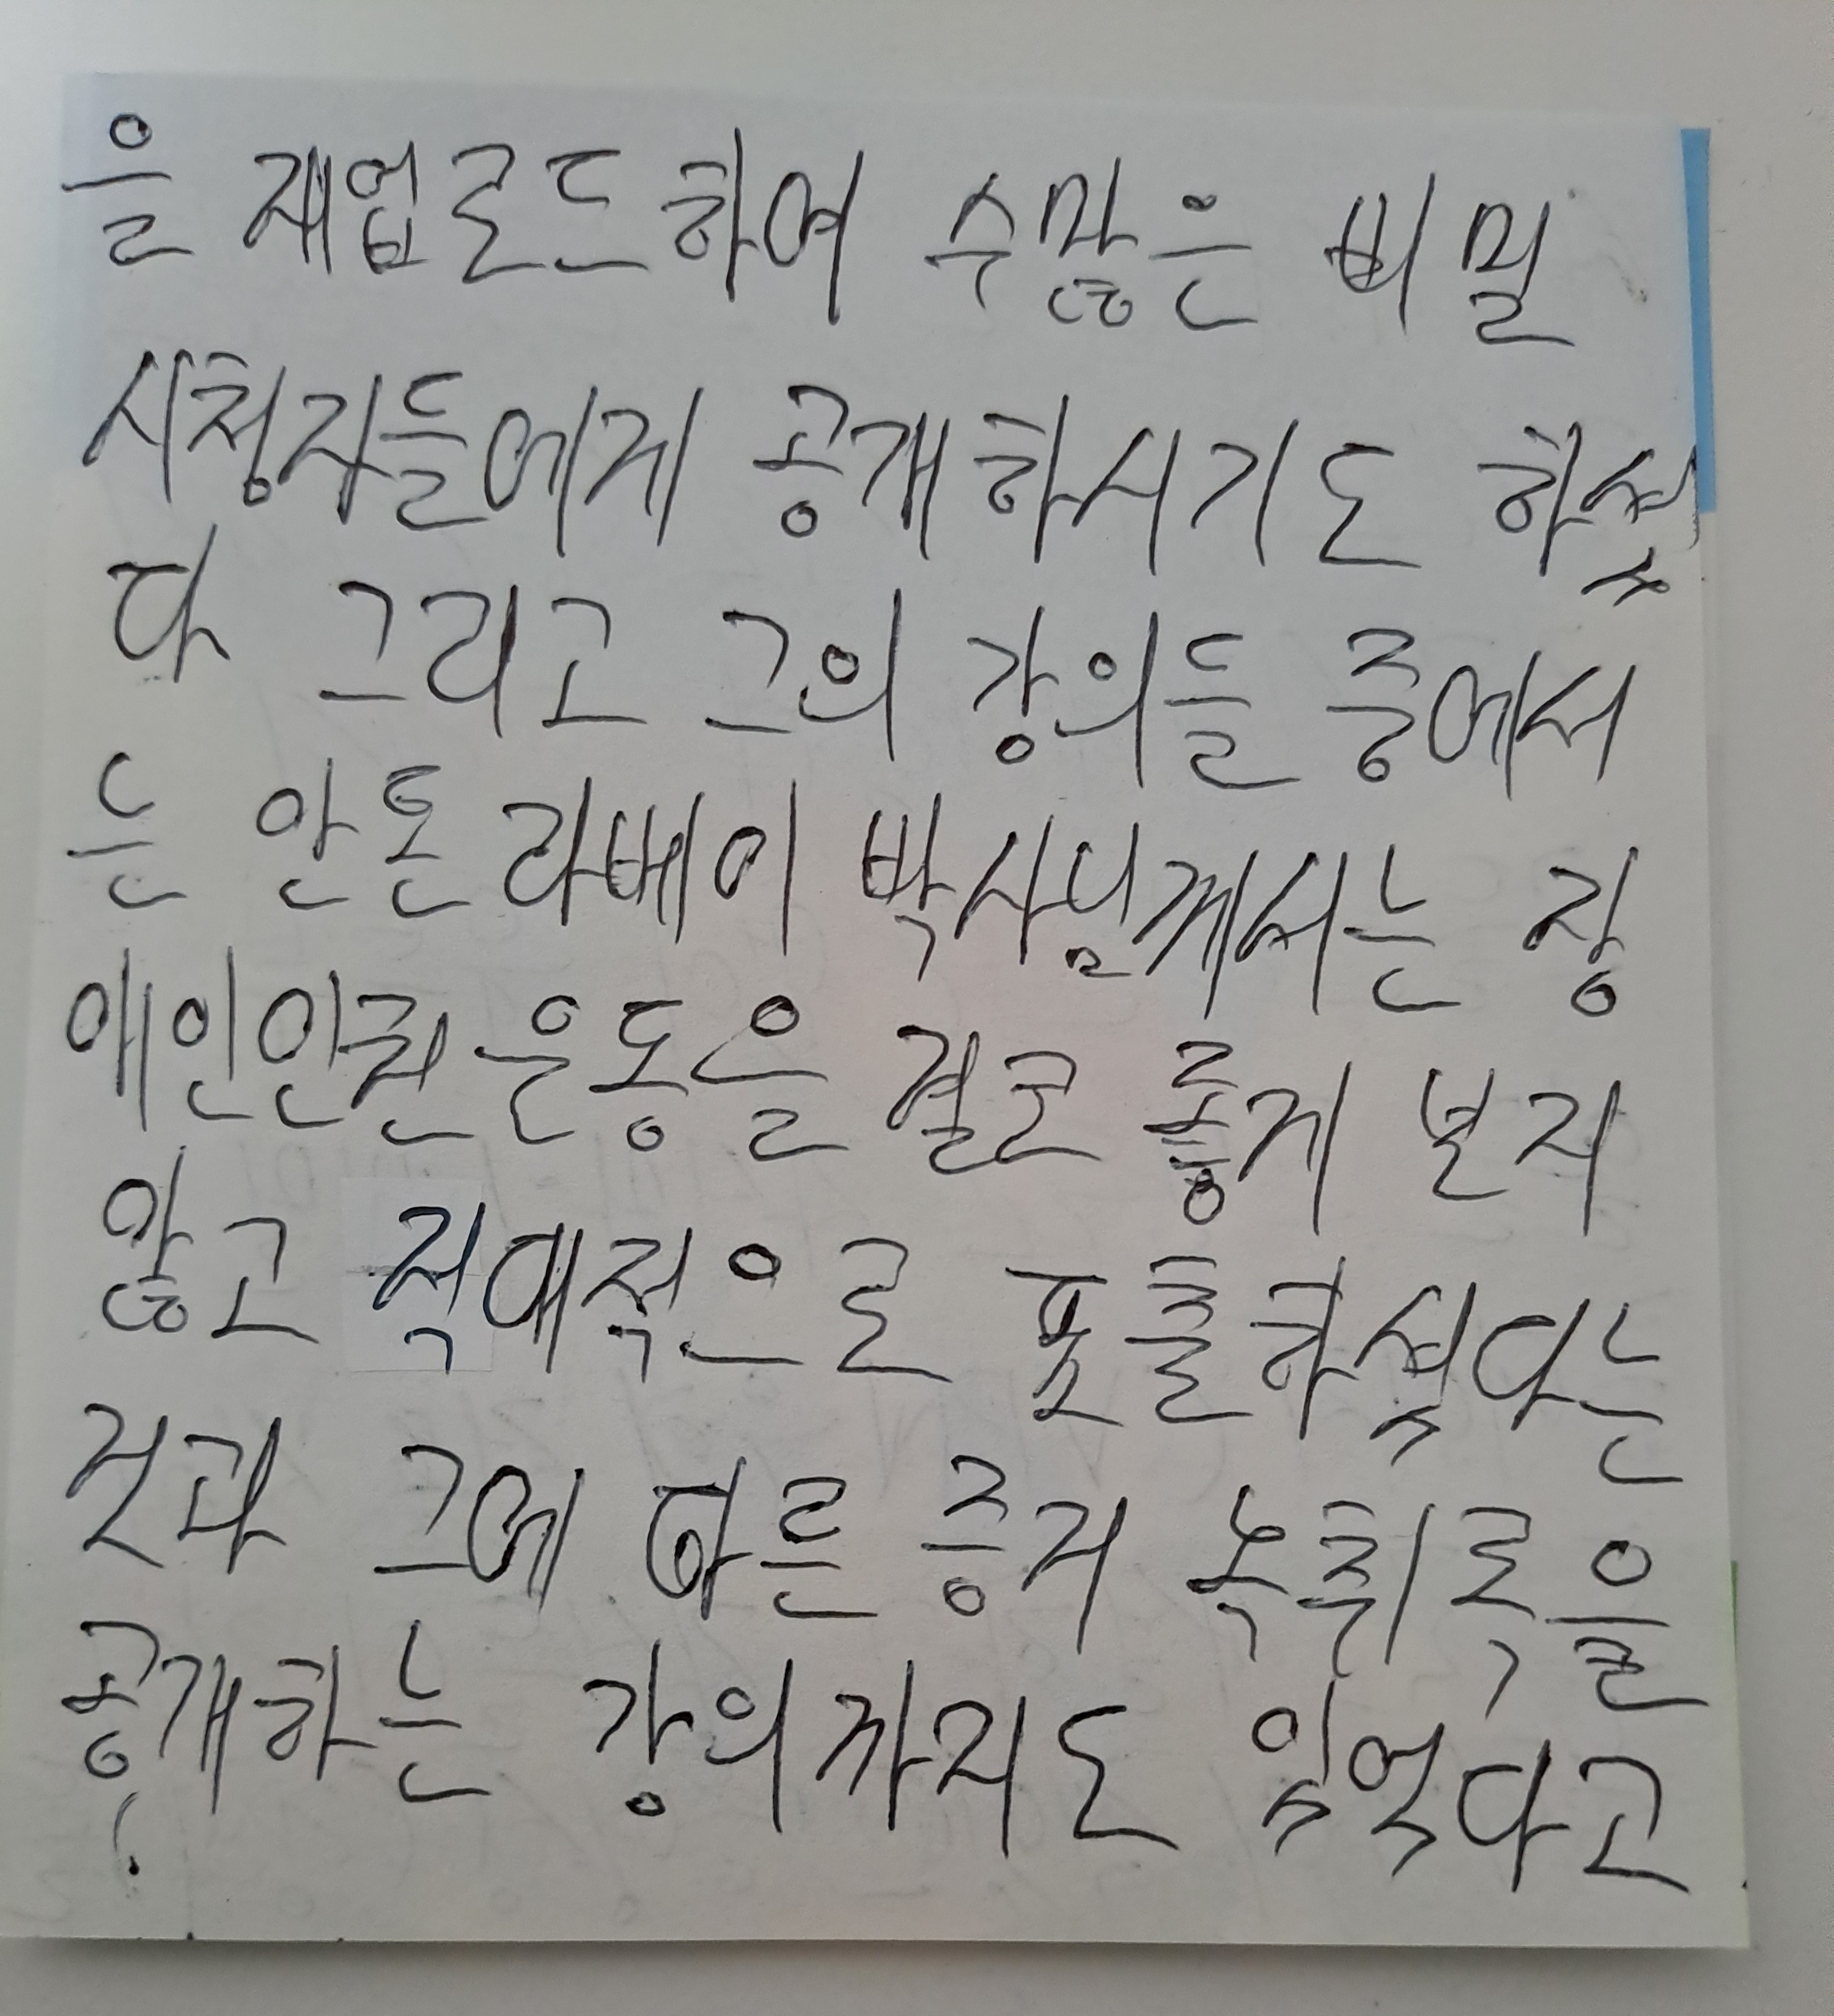 을 재업로드하여 수많은 비밀
시청자들에게 공개하시기도 하셨
다 그리고 그의 강의들 중에서
는 안톤라베이 박사님께서는 장
애인인권운동을 결코 좋게 보지
않고 적대적으로 표출하셨다는
것과 그에 따른 증거 녹취록을
공개하는 강의까지도 있었다고